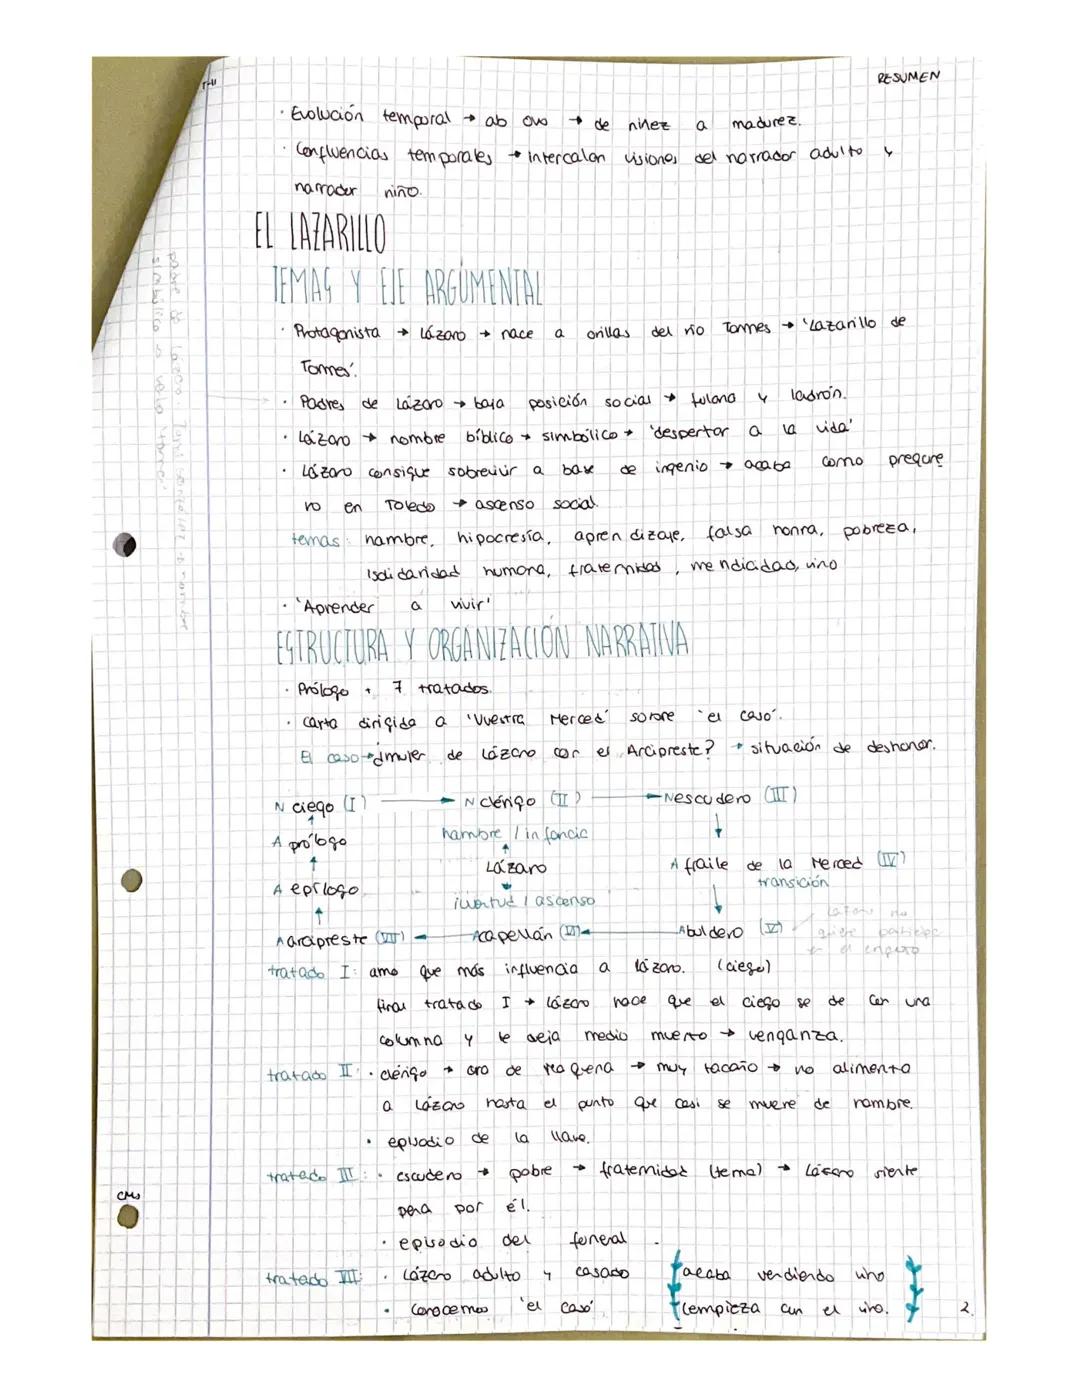 RESUMEN
· Evolución temporal → ab ovo → de niñez a madurez.
· Confluencias temporales → intercalan visiones del narrador adulto y
narrador niño.
EL LAZARILLO
TEMAS Y EJE ARGUMENTAL
· Protagonista → Lázaro → nace a orillas del río Tormes → 'Lazarillo de
Tormes'.
· Padres de Lázaro → baja posición social → fulana y ladrón.
· Lázaro → nombre bíblico → simbólico → 'despertar a la vida'
· Lázaro consigue sobrevivir a base de ingenio → acaba como pregone
ro en Toledo → ascenso social.
temas: hambre, hipocresía, aprendizaje, falsa honra, pobreza,
solidaridad humana, fraternidad, mendicidad, vino
· 'Aprender a vivir'
ESTRUCTURA Y ORGANIZACIÓN NARRATIVA
· Prólogo + 7 tratados.
· Carta dirigida a 'Vuestra Merced' sobre 'el caso'.
El caso → ¿mujer de Lázaro con el Arcipreste? → situación de deshonor.
N ciego (I) → N clérigo (II) → N escudero (III)
A prólogo
hambre / infancia
Lázaro
A fraile de la Merced (IV)
transición
A epílogo
juventud / ascenso
A arcipreste (VII) ← A capellán (VI) ← A buldero (V)
tratado I: amo que más influencia a Lázaro. (ciego)
final tratado I → Lázaro hace que el ciego se de con una
columna y le deja medio muerto → venganza.
tratado II: · clérigo → muy tacaño → no alimenta
a Lázaro hasta el punto que casi se muere de hambre.
· episodio de la llave.
tratado III: · escudero → pobre → fraternidad (tema) → Lázaro siente
pena por él.
CMS
· episodio del funeral.
tratado VII: · Lázaro adulto y casado acaba vendiendo vino
· Conocemos 'el caso' empieza con el vino.
2.